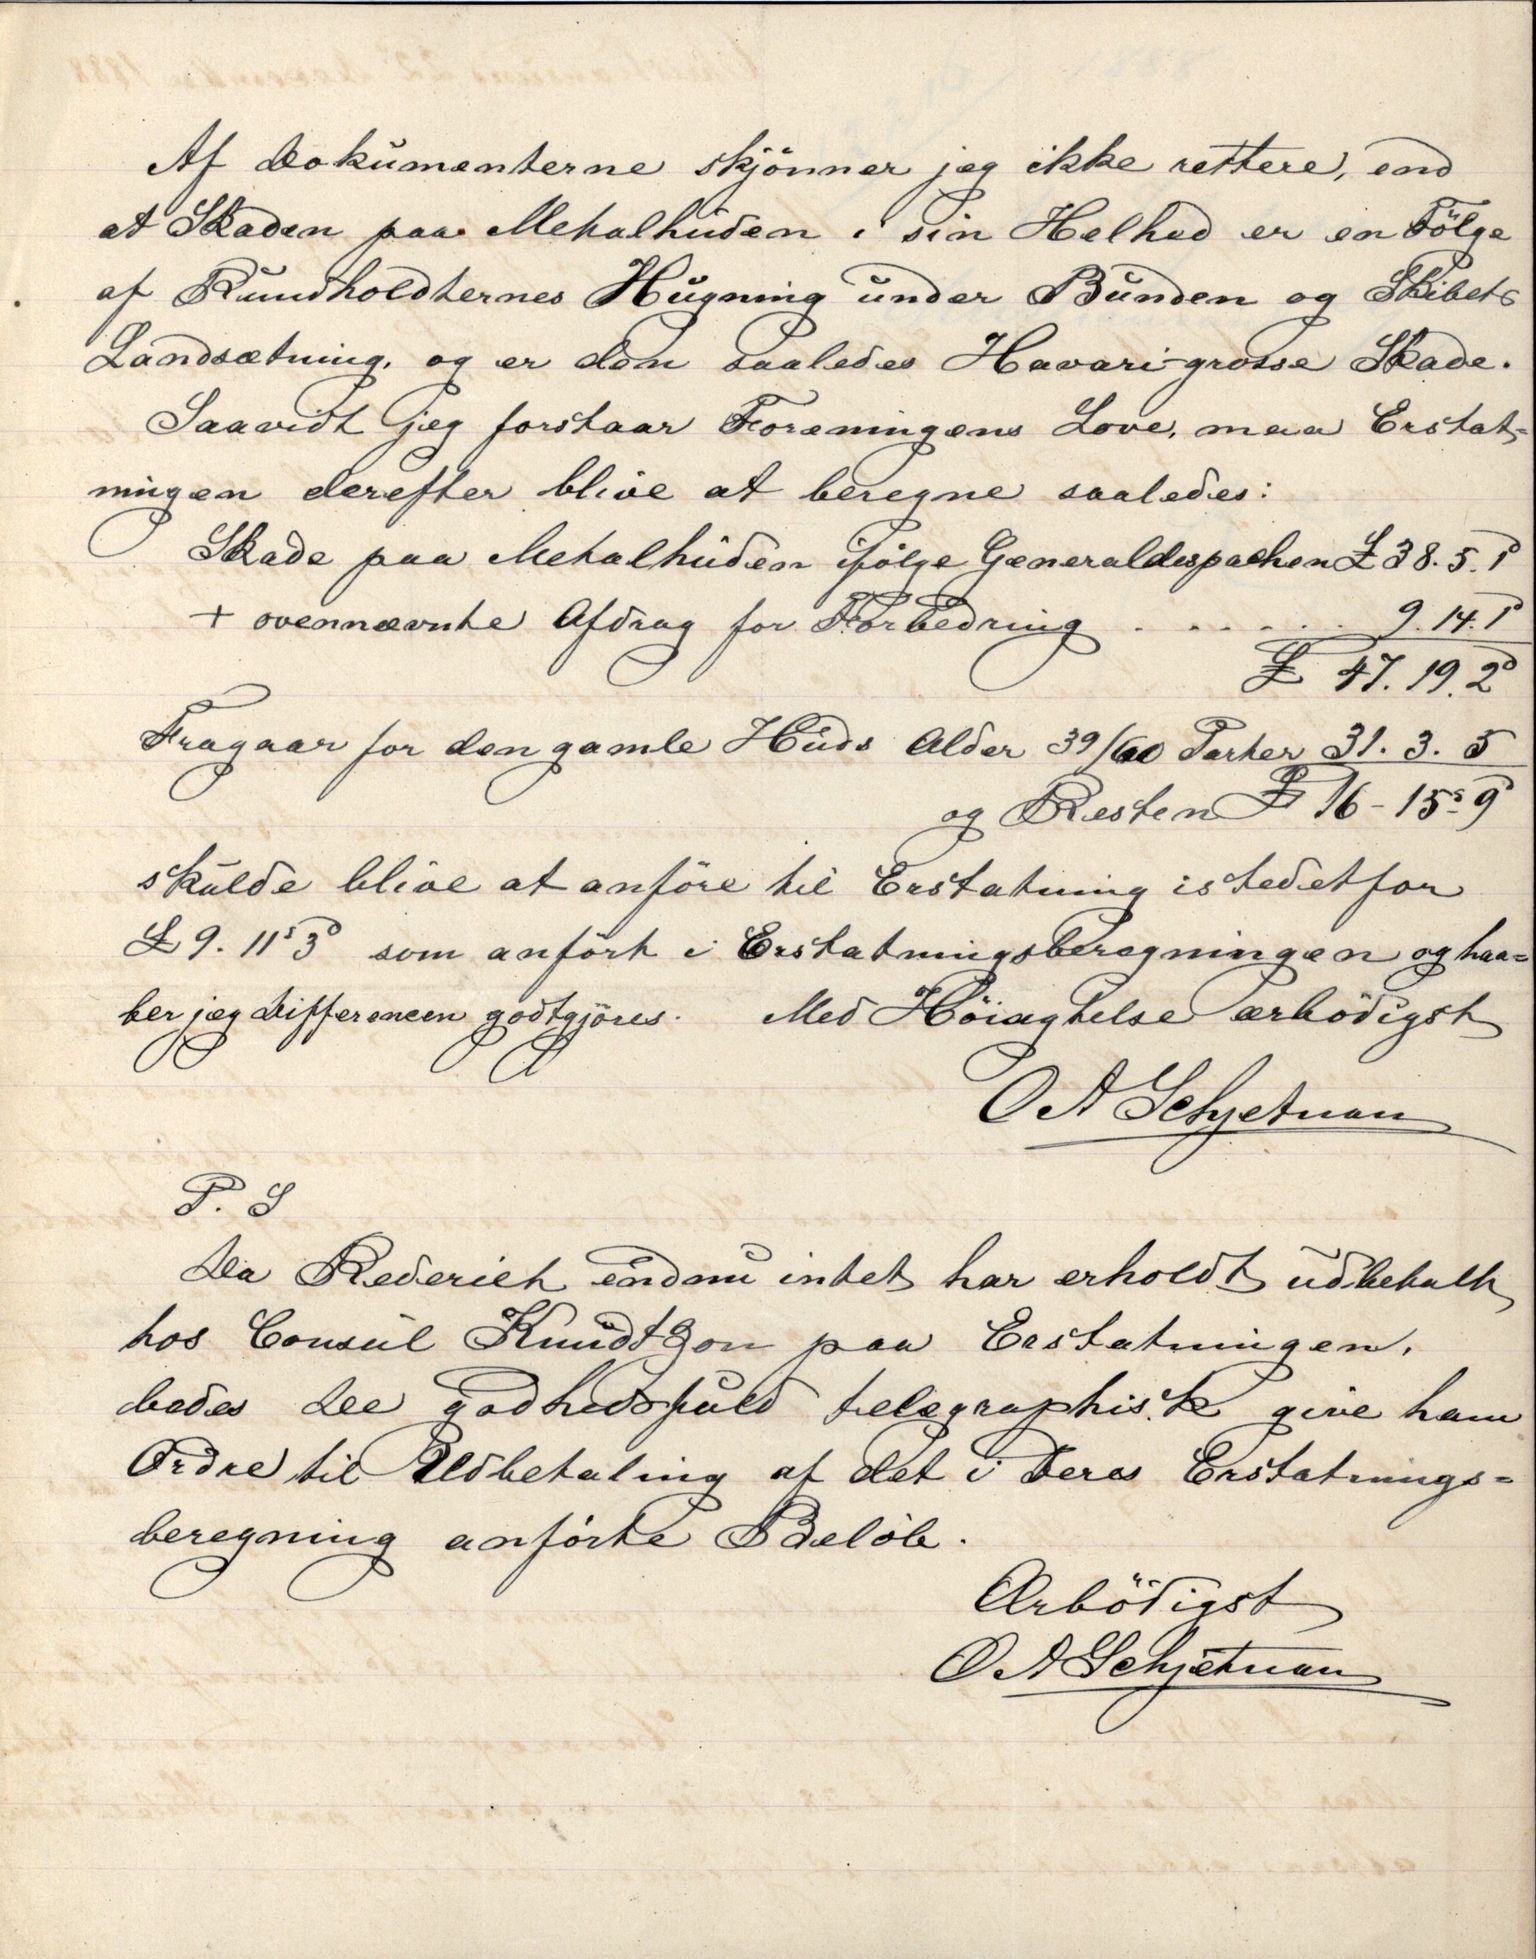 Af Dokumenterne skjönner jeg ikke rettere, end
at Skaden paa Metalhuden i sin Helhed er en Fölge
af Rundholdternes Hugning under Bunden og Skibets
Landsætning, og er den saaledes Havari-grosse Skade.
Saavidt jeg forstaar Foreningens Love, maa Erstat-
ningen derefter blive at beregne saaledes:
Skade paa Metalhuden ifölge Generaldespachen £ 38. 5. 1d
+ ovennævnte Afdrag for Forbedring . . . . . . 9. 14. 1d
£ 47. 19. 2d
Fragaar for den gamle Huds Alder 39/60 Parter 31. 3. 5
og Resten £ 16 - 15s 9d
skulde blive at anföre til Erstatning istedetfor
£ 9. 11s 3d som anfört i Erstatningsberegningen og haa=
ber jeg Differencen godtgjöres. Med Höiagtelse ærbödigst
O A Schjetnan
P. S
Da Rederiet endnu intet har erholdt udbetalt
hos Consul Knudtzon paa Erstatningen,
bedes De godhedsfuld telegraphisk give ham
Ordre til Udbetaling af det i Deres Erstatnings=
beregning anförte Belöb.
Ærbödigst
O A Schjetnan